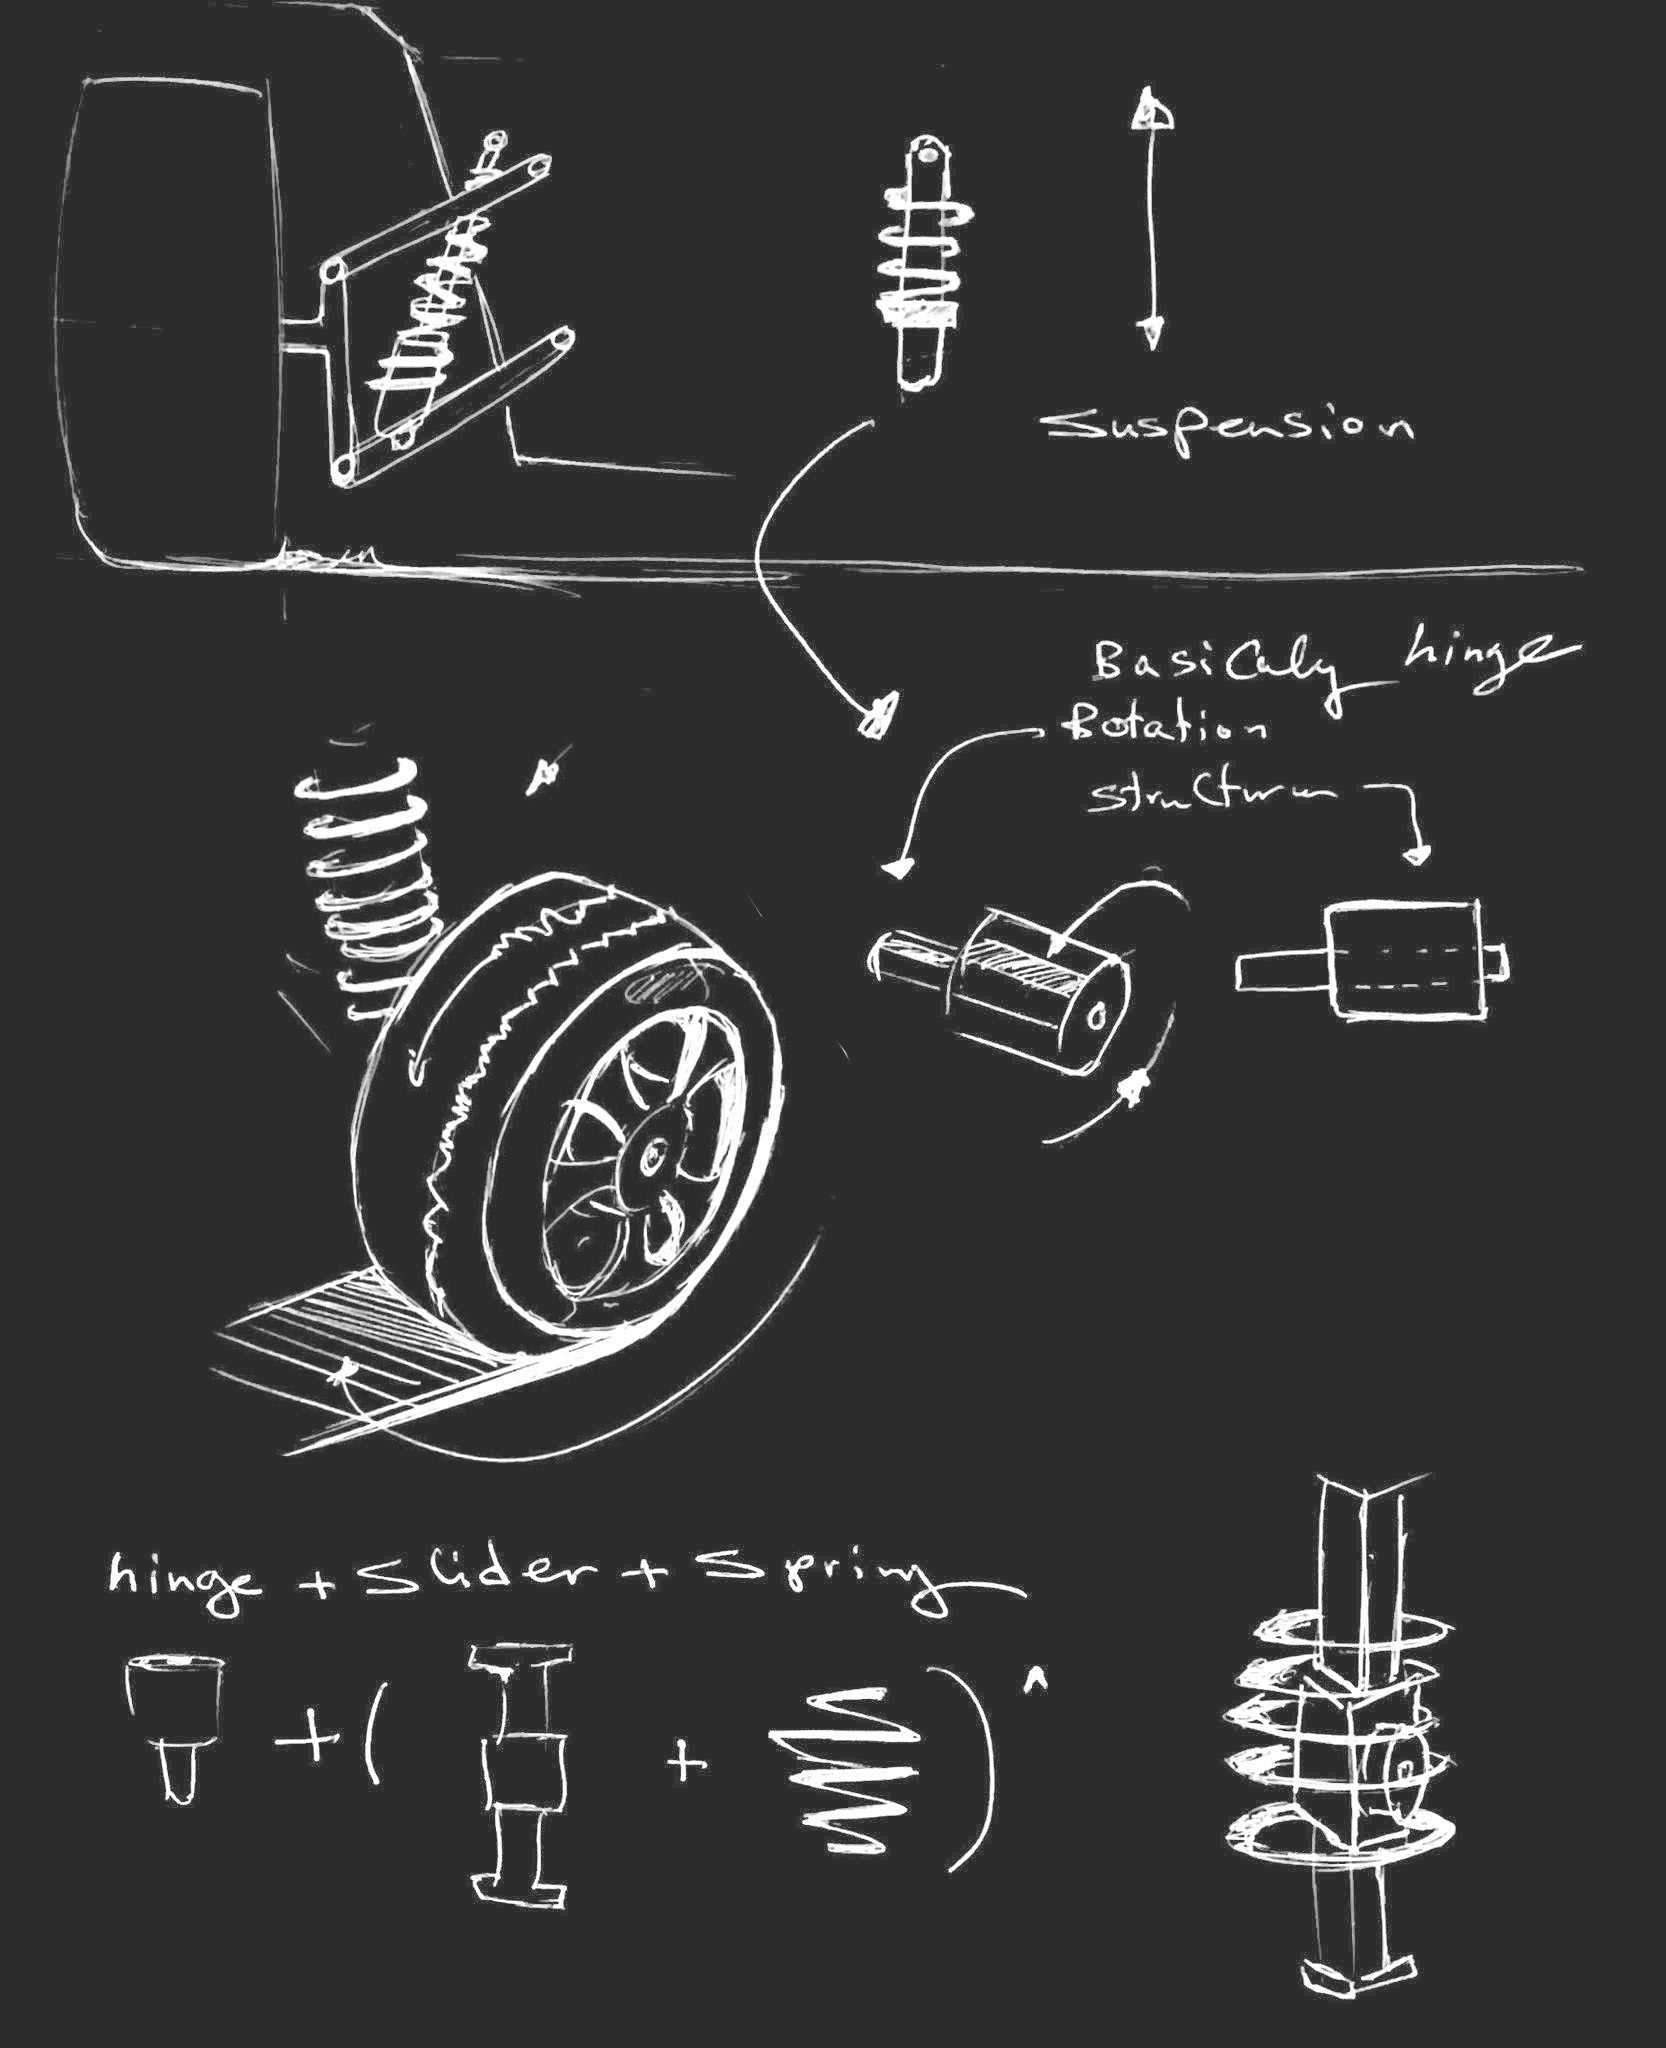 Suspension
Basicaly hinge
Rotation
structure
hinge + slider + spring
+ ( + )